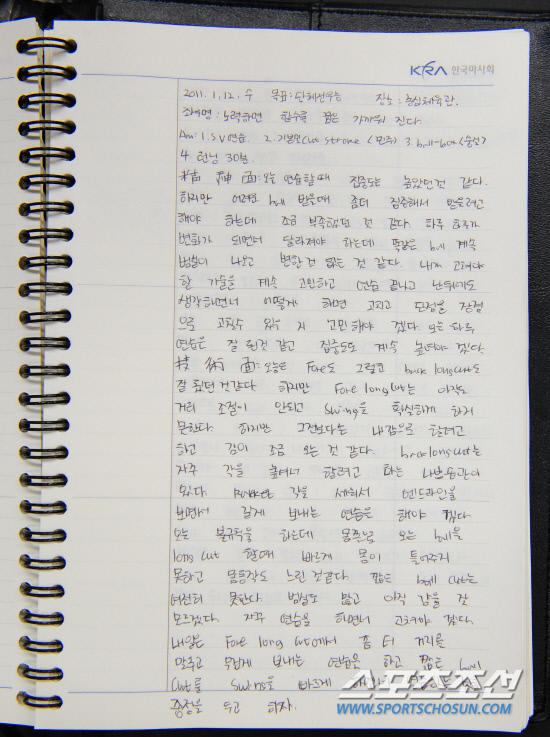 KRA 한국마사회
2011. 1. 12. 수 목표: 단체전우승 장소: 탁심체육관.
좌우명: 노력하면 할수록 꿈은 가까워 진다.
Am: 1. SV연습. 2. 기본적 Cut stroke <민주> 3. ball-box
4. 런닝 30분.
精 神 面: 오늘 연습할때 집중도는 높았던것 같다.
하지만 어려운 ball 받을때 좀더 집중해서 받을려고
해야 하는데 조금 부족했던 것 같다. 하루 하루가
변화가 되면서 달라져야 하는데 똑같은 ball 계속
범실이 나오고 변한건 없는 것 같다. 내가 고쳐야
할 기술을 계속 고민하고 연습 끝나고 난뒤에도
생각하면서 어떻게 하면 고치고 단점을 장점
으로 고칠수 있을 지 고민해야 겠다. 오늘 하루
연습은 잘 된것 같고 집중도도 계속 높여야 겠다.
技 術 面: 오늘은 Fore도 그렇고 back longcut도
잘 됐던 것같다. 하지만 Fore long cut는 아직도
거리 조절이 안되고 swing을 확실하게 하지
못한다. 하지만 그전보다는 내감으로 할려고
하고 감이 조금 오는 것 같다. back long cut는
자꾸 각을 눕여서 할려고 하는 나쁜습관이
있다. Racket 각을 세워서 엔드라인을
보면서 길게 보내는 연습을 해야 겠다.
오늘 불규칙을 하는데 몸쪽으로 오는 ball을
long cut 할때 빠르게 몸이 틀어주지
못하고 몸동작도 느린 것같다. 짧은 ball cut는
여전히 못한다. 범실도 많고 아직 감을 잘
모르겠다. 자꾸 연습을 하면서 고쳐야 겠다.
내일은 Fore long cut에서 좀 더 거리를
맞추고 무겁게 보내는 연습을 하고 짧은 ball
cut를 swing을 빠르게
중점을 두고 하자.
스포츠조선
WWW.SPORTSCHOSUN.COM